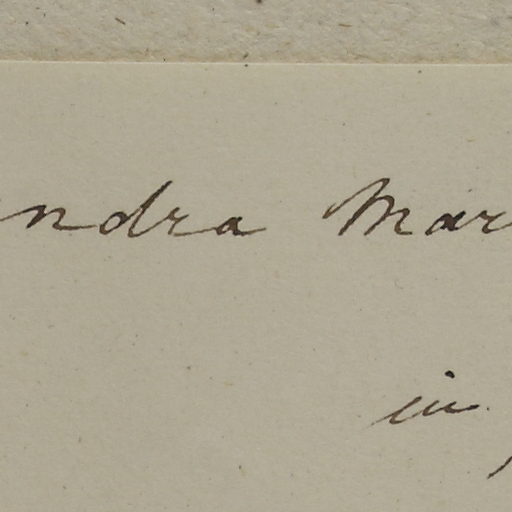 ndra Mar
in